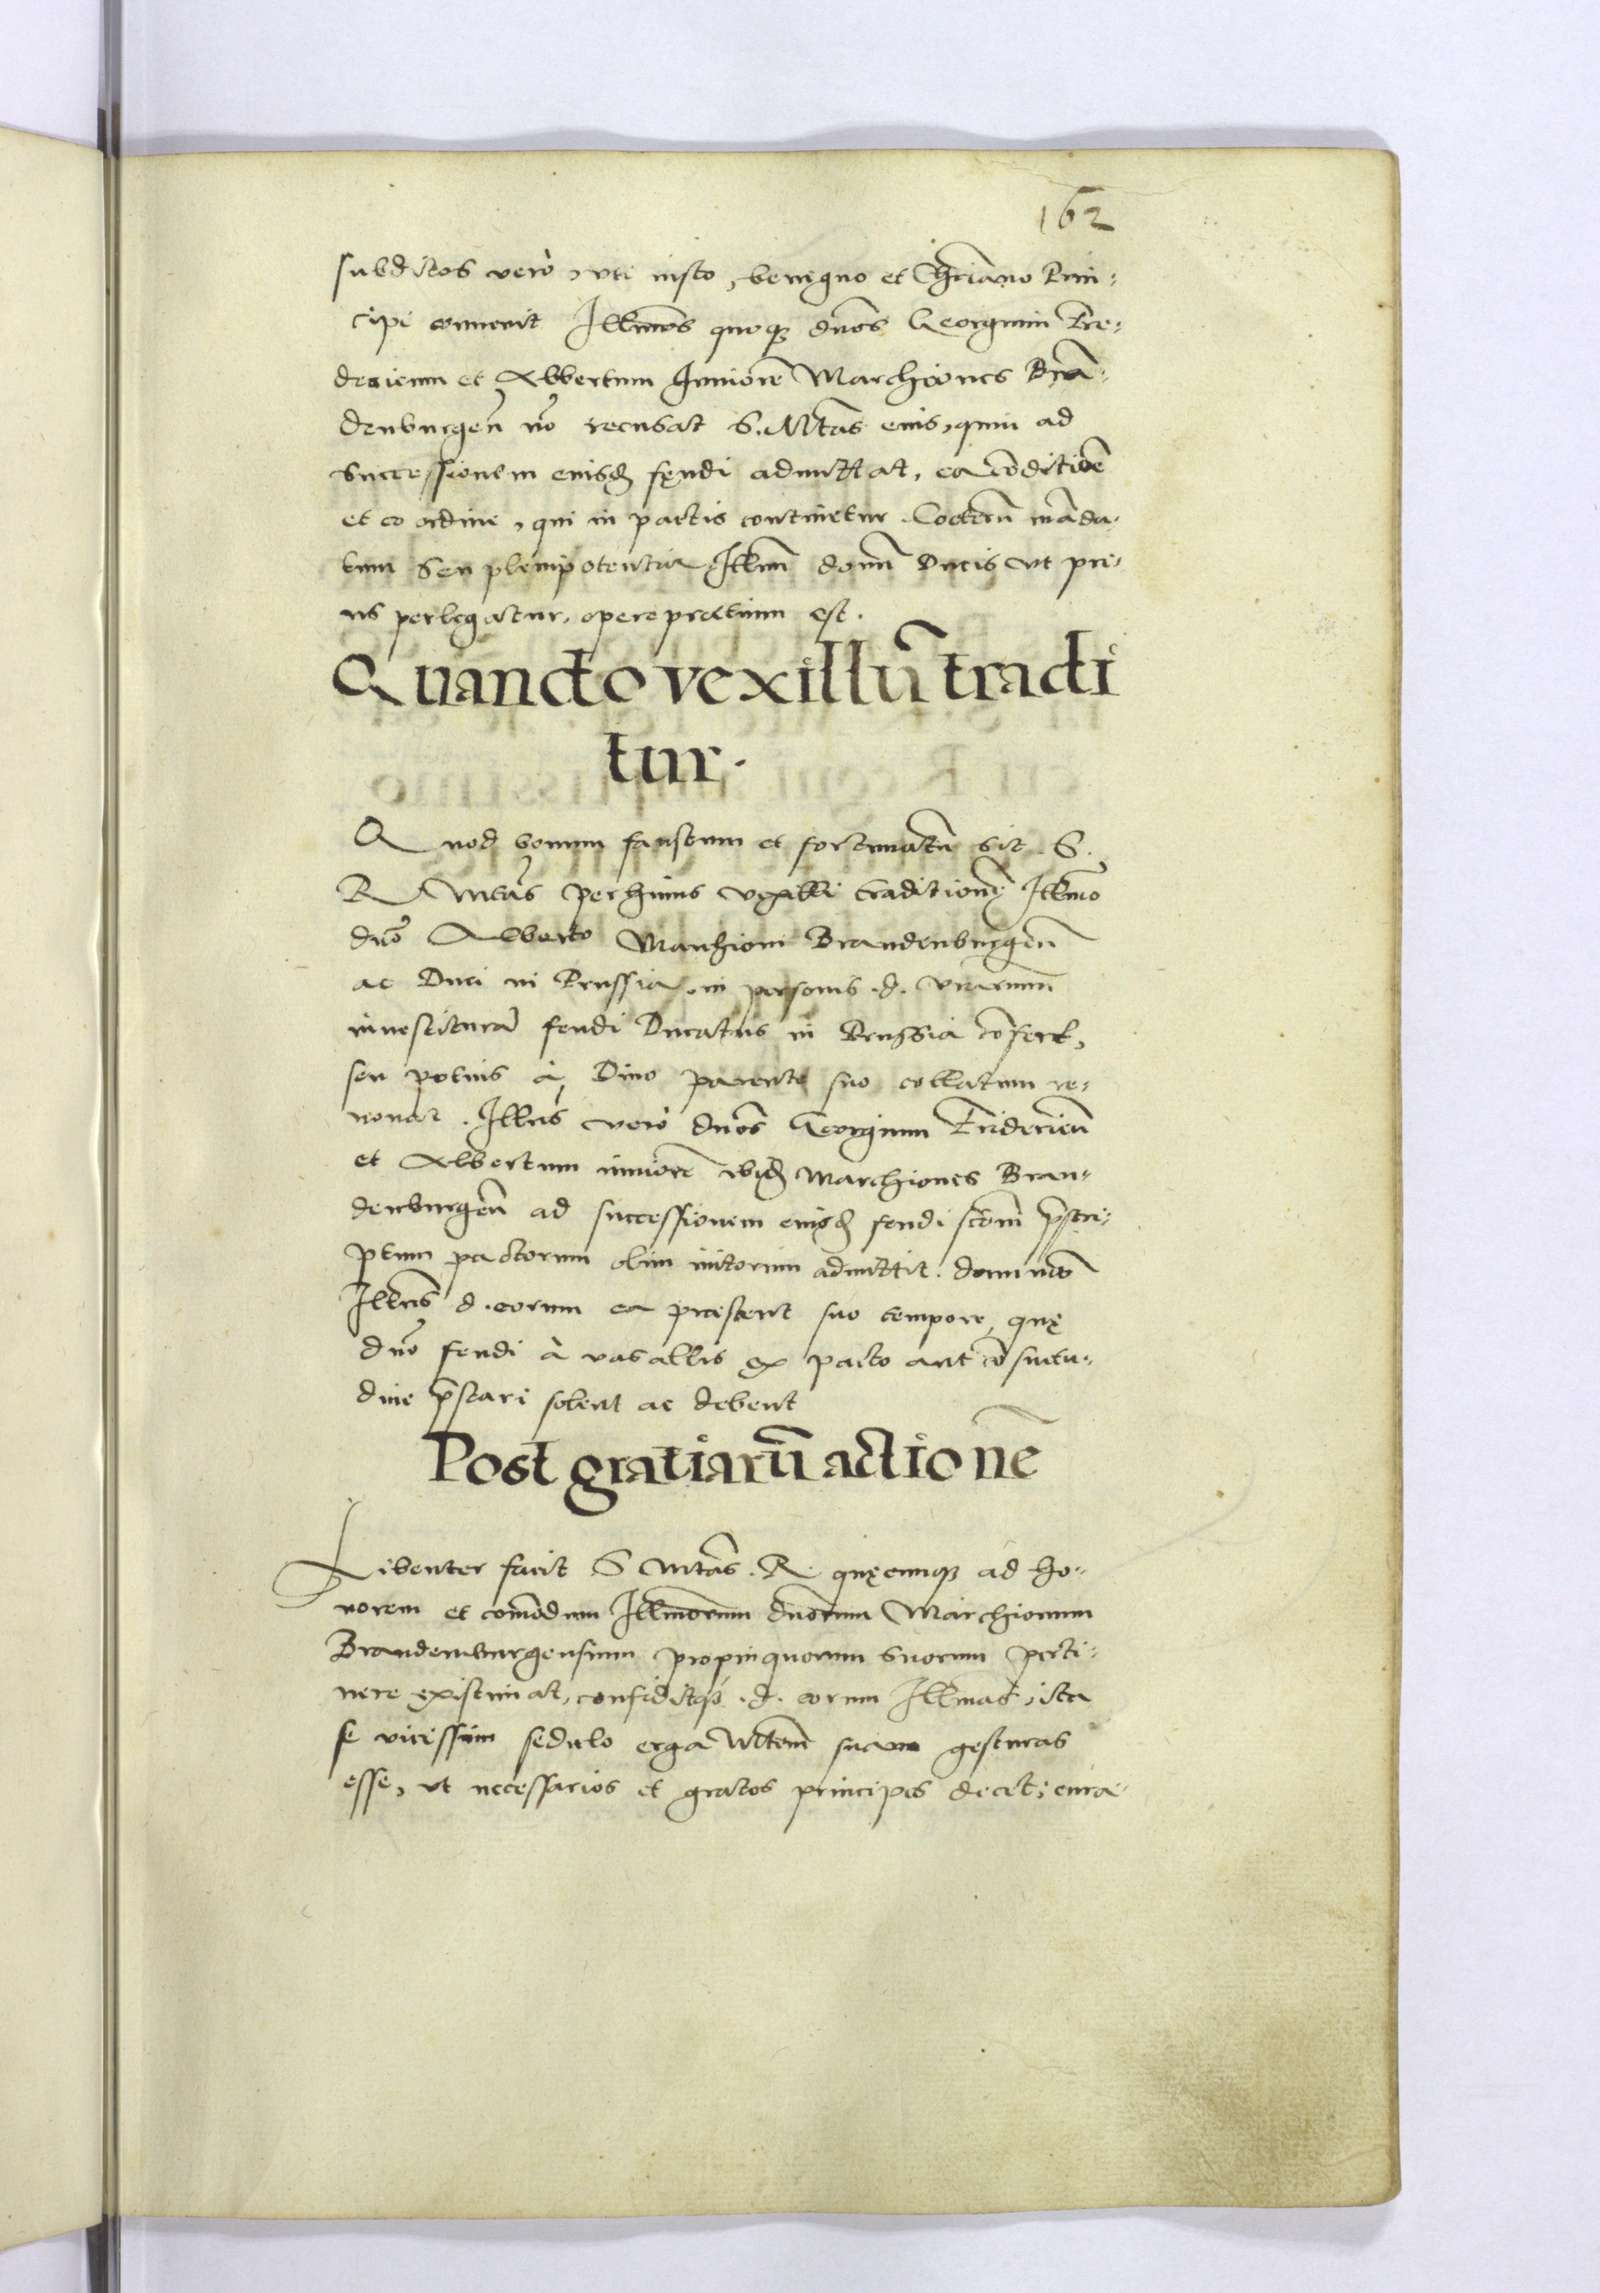 162
subditos verò, uti iusto, benigno et Chrianō Prin-
cipi convenit Illmōs quoq̨ dnōs Georgium Fre-
dericum et Albertum Juniorē Marchiones Brā-
denburgeñ nō recusat S. Mtās eius, quin ad
successionem eiusđ fęudi admittat, ea cōditiōe
et eo ordine, qui in pactis continetur. Coeterū māda-
tum seu plenipotentia Illmi domī Ducis ut pri-
us perlegatur, opereprætium est.
Quando vexillū tradi
tur.
Quod bonum faustum et fortunatū sit. S.
R Mtās per huius vexilli traditionę Illmo
dnō Alberto Marchioni Brandenburgeñ
ac Duci in Prussia, in personis .d. vrarum
investiturā feudi Ducatus in Prussia cōfert,
seu potius à Divo parente suo collatum re-
novat. Illres verò dnōs Georgium Fridericū
et Albertum iuniorē ibiđ Marchiones Bran-
denburgeñ ad successionem eiusđ feudi scdm p̄scri-
ptum pactorum olim initorum admittit. dummō
Illres d. eorum ea præstent suo tempore, quę
dnō feudi à vasallis ex pacto aut cōsuetu-
dine p̄stari solent ac debent
Post gratiarū actionē
Libenter facit S Mtās. R quęcunq̨ ad ho-
norem et comōdum Illmorum dnorum Marchionum
Brandenburgensium propinquorum suorum perti-
nere existimat, confiditq̨ .d. eorum Illmas, ita
se vicissim sedulo erga Mtem suam gesturas
esse, ut necessarios et gratos principes decet; cura-